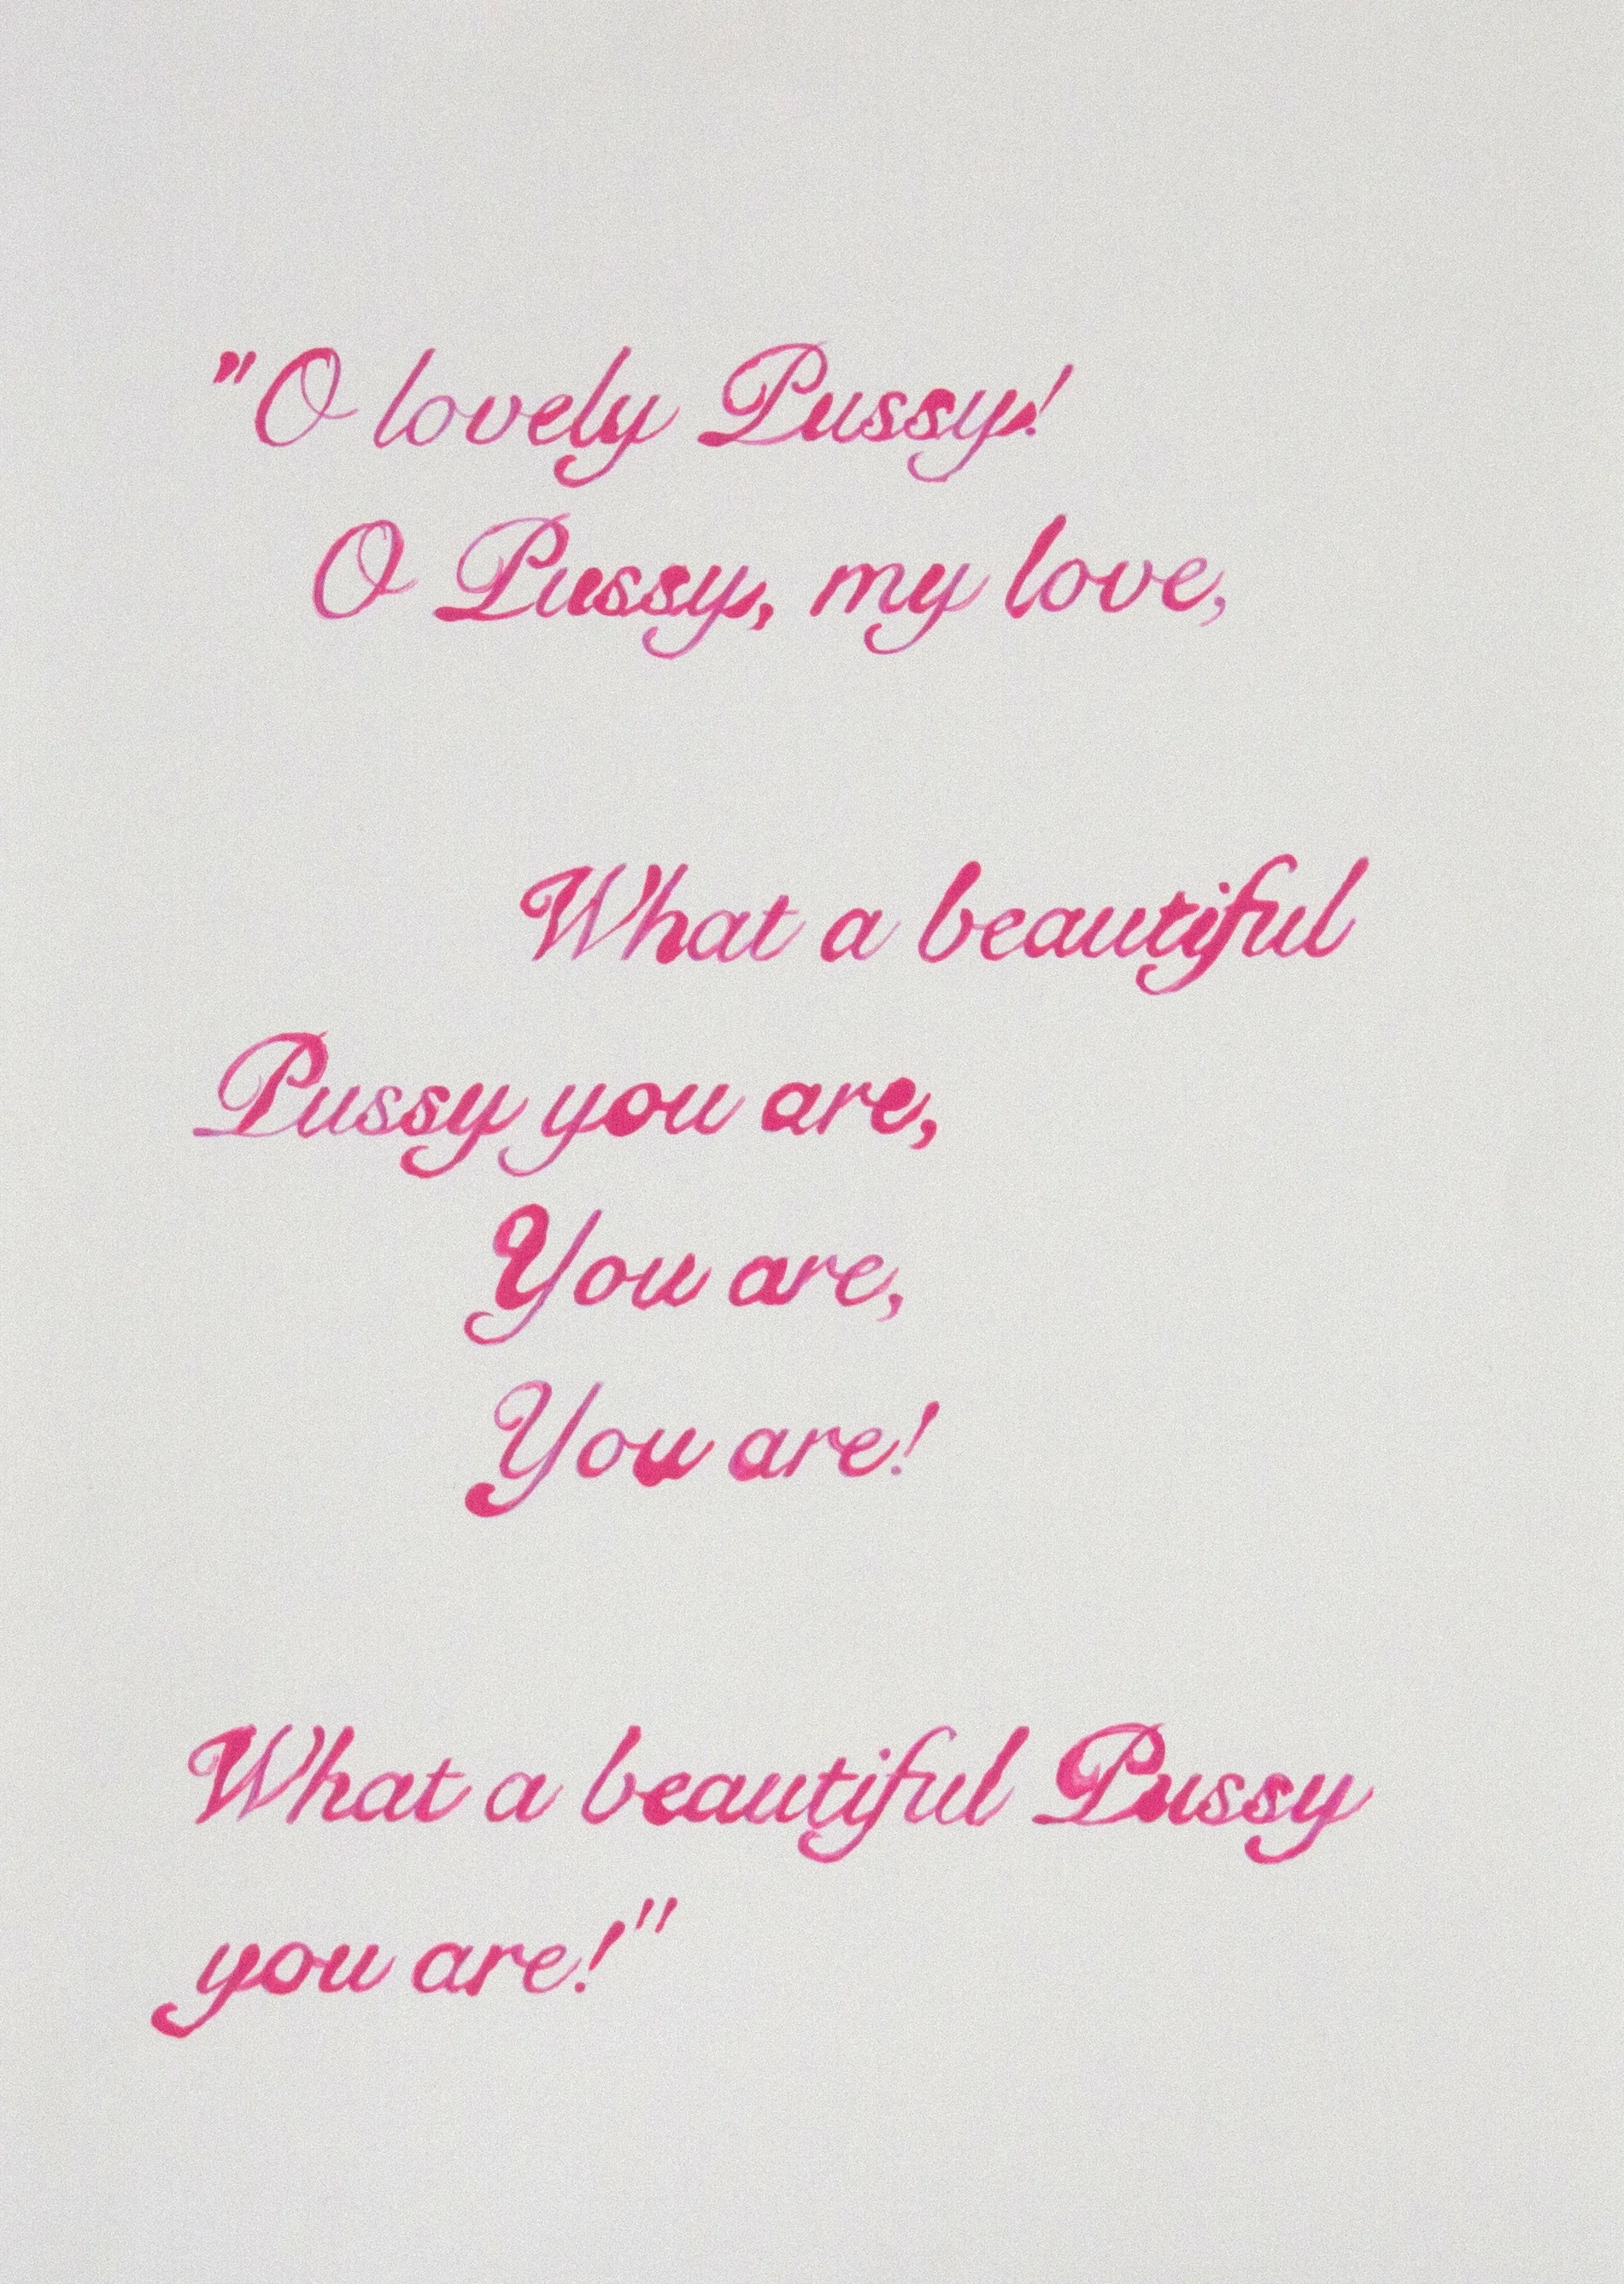 "O lovely Pussy!
O Pussy, my love,
What a beautiful
Pussy you are,
You are,
You are!
What a beautiful Pussy
you are!"